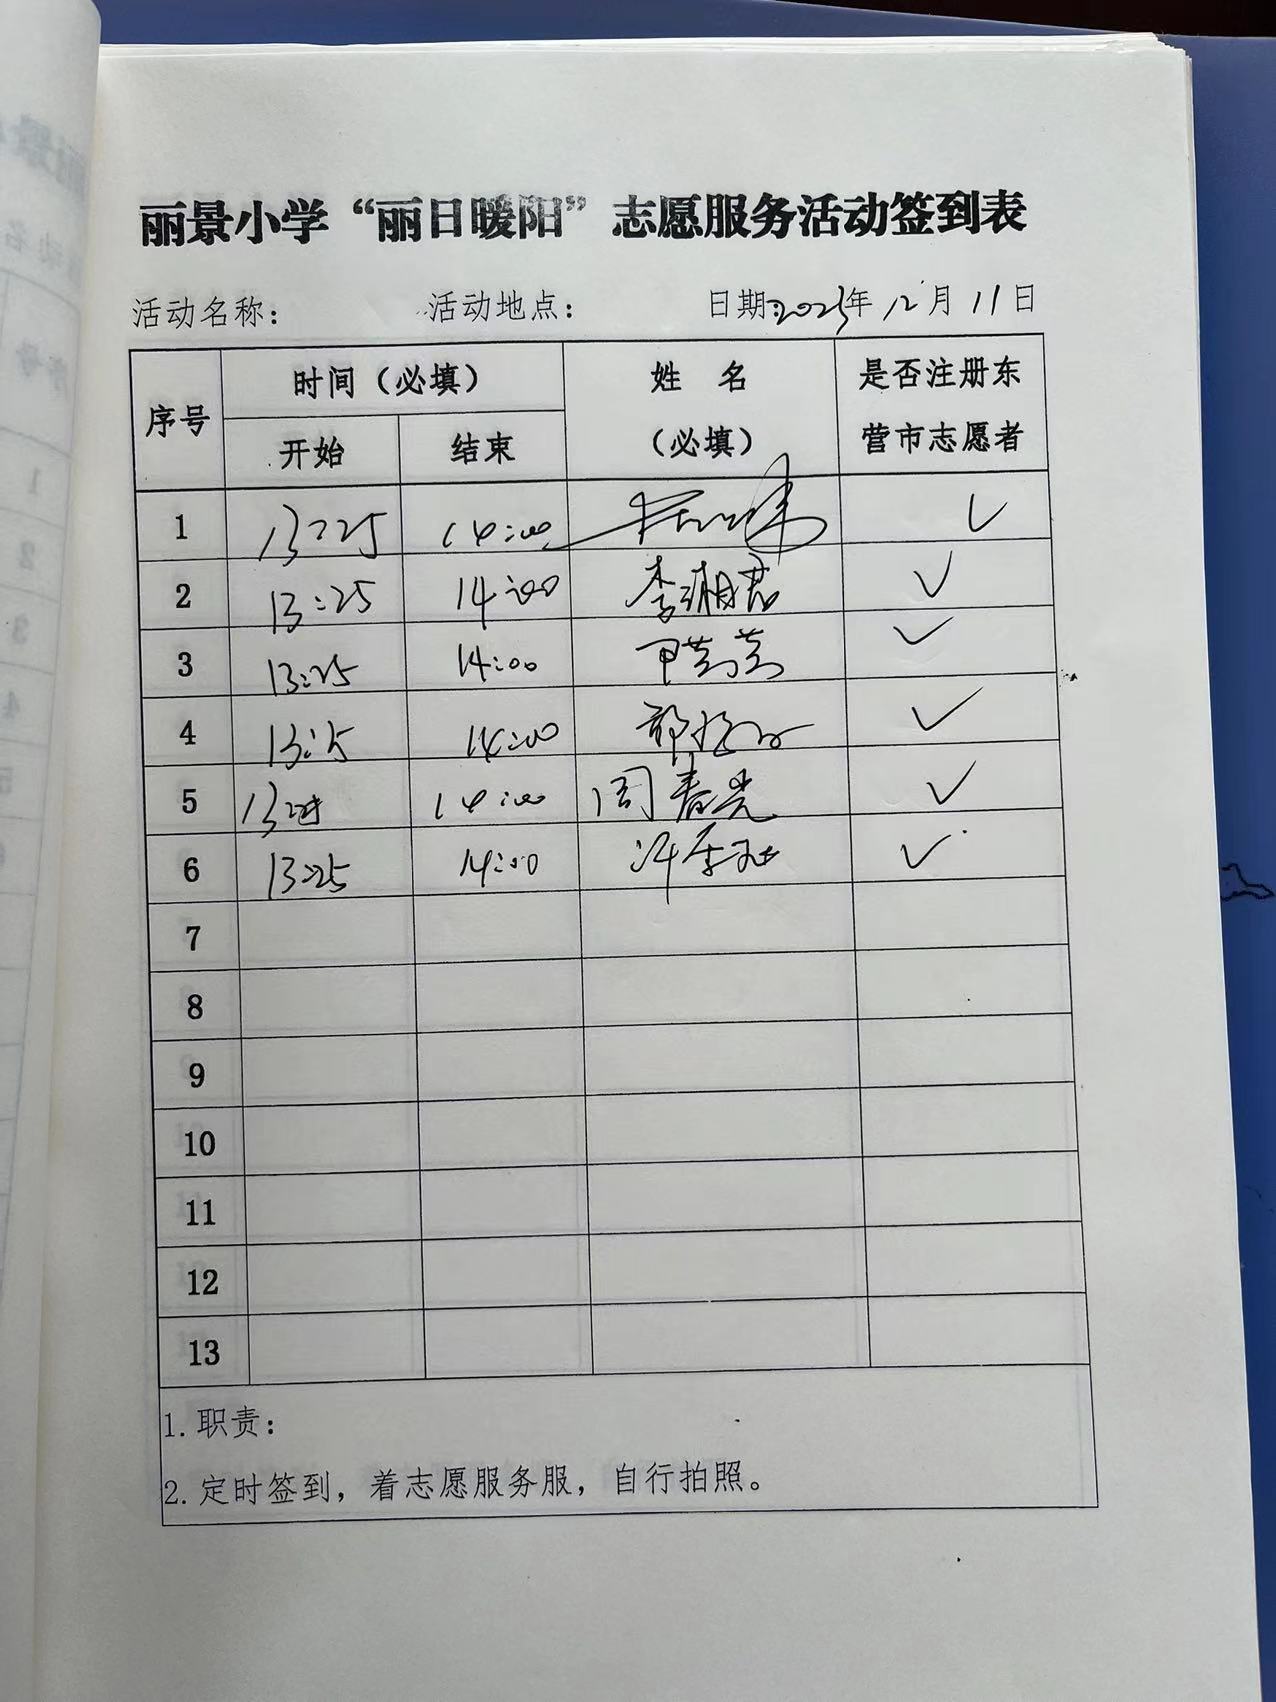 丽景小学“丽日暖阳”志愿服务活动签到表
活动名称： 活动地点： 日期：2025年12月11日
序号 时间（必填） 姓 名（必填） 是否注册东营市志愿者
开始 结束
1 13:25 14:00 ✓
2 13:25 14:00 李湘君 ✓
3 13:25 14:00 ✓
4 14:00 ✓
5 14:00 周春光 ✓
6 13:25 14:00 ✓
7
8
9
10
11
12
13
1.职责：
2.定时签到，着志愿服务服，自行拍照。